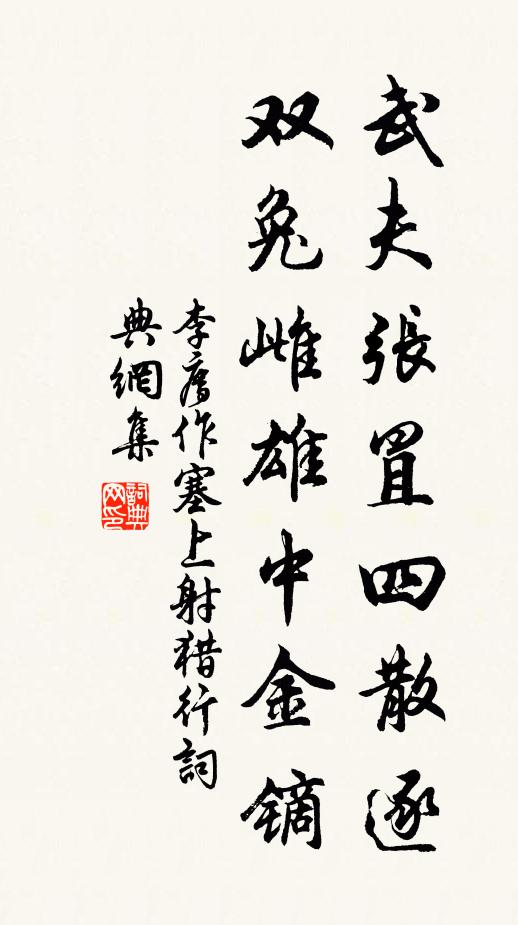 武夫張罝四散逐
双兔雌雄中金镝
李廌作塞上射猎行詞
典網集
詞典网印